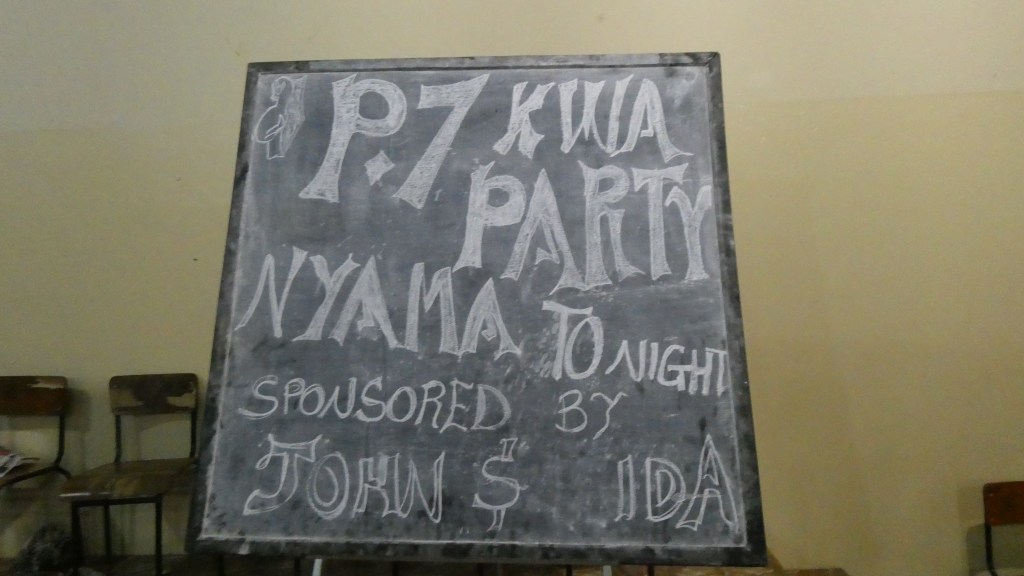 P.7 KWA
PARTY
NYAMA TONIGHT
SPONSORED BY
JOHN $ IDA